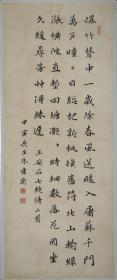 爆竹聲中一歲除春風送暖入屠蘇千門
萬戶曈々日總把新桃換舊符北山輸綠
漲橫陂直塹回塘灩々時細數落花因坐
久緩尋芳草得歸遲 王安石七絕詩二首
甲寅 朱庸齋